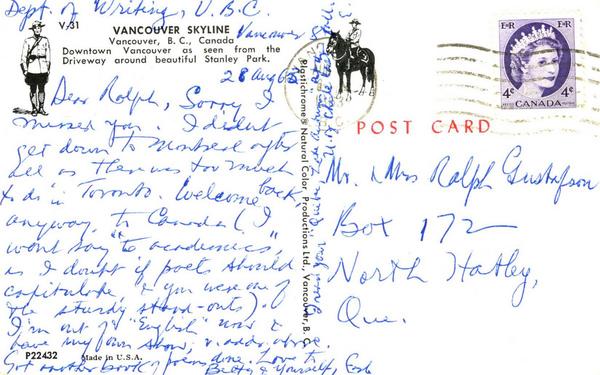 Dept. of Writing, U.B.C.
Vancouver
V-31
VANCOUVER SKYLINE
Vancouver, B. C., Canada
Downtown Vancouver as seen from the
Driveway around beautiful Stanley Park.
28 Aug
Dear Ralph, Sorry I
missed you. I didn't
get down to Montreal after
all as there was too much
to do in Toronto. Welcome back,
anyway, to Canada (I
won't say to "academics,"
as I doubt if poets should
capitulate, & you were one of
the sturdy stand-outs).
I'm out of "English" now &
have my own show, v. addr. above.
Got another book of poems done. Love to
Betty & yourself,
P22432
Made in U.S.A.
Plastichrome® Natural Color Productions Ltd., Vancouver, B. C.
POST CARD
E R
4¢ CANADA 4¢
Mr. & Mrs Ralph Gustafson
Box 172
North Hatley,
Que.